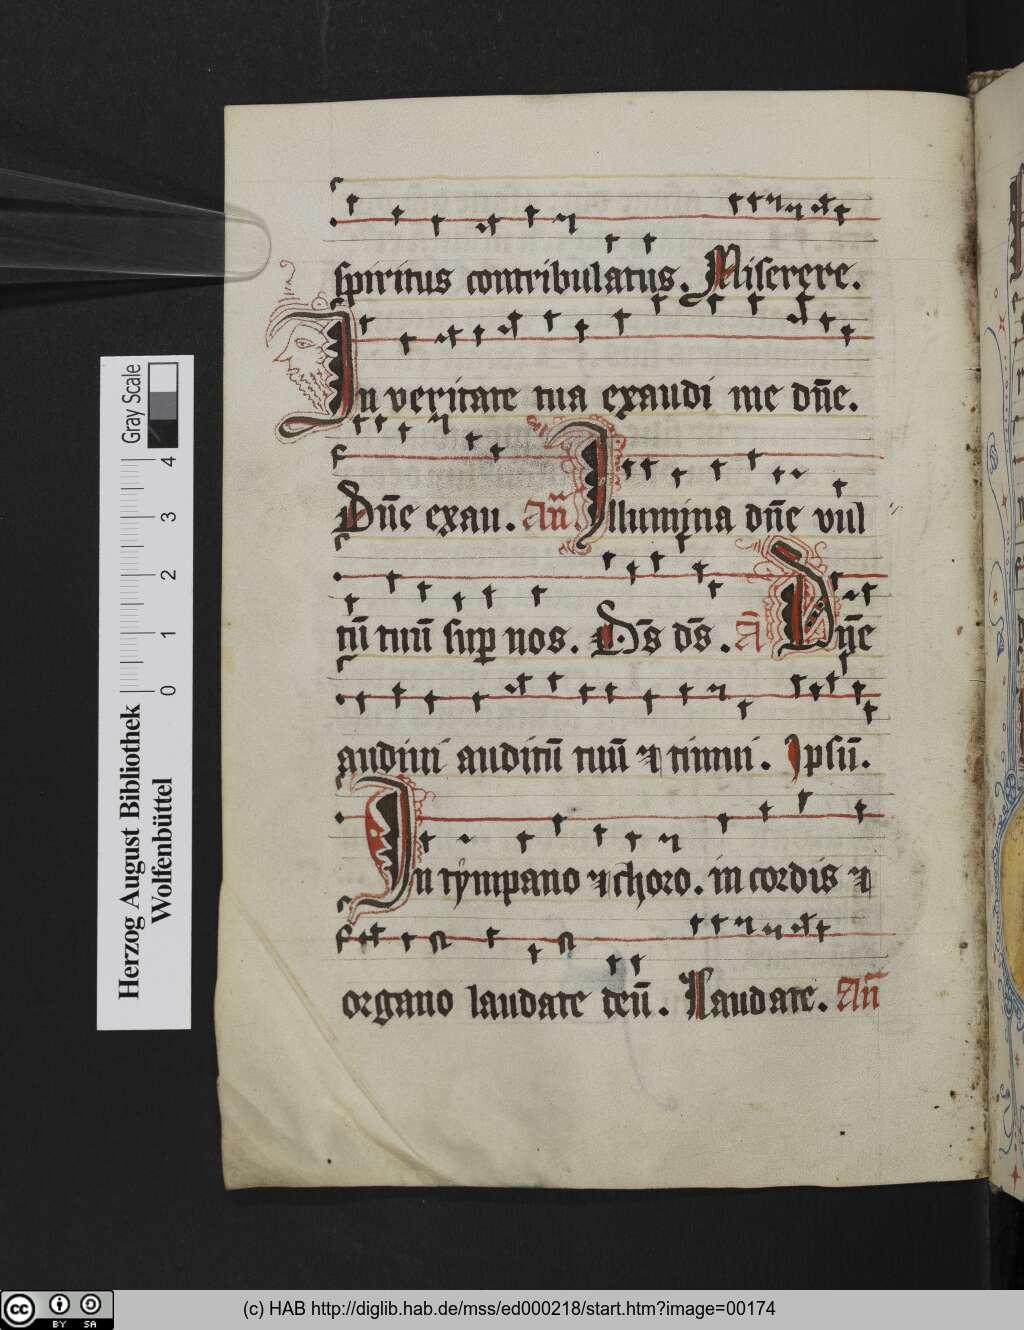 spiritus contribulatus. Miserere.
In veritate tua exaudi me dn̄e.
Dn̄e exau. An̄ Illumina dn̄e vul
tū tuū sup̱ nos. Ds̄ ds̄. A̅ Dn̄e
audiui auditū tuū ⁊ timui. Ipsū.
In tympano ⁊ choro. in cordis ⁊
organo laudate deū. Laudate. An̄
Gray Scale
0 1 2 3 4
Herzog August Bibliothek
Wolfenbüttel
cc BY SA
(c) HAB http://diglib.hab.de/mss/ed000218/start.htm?image=00174